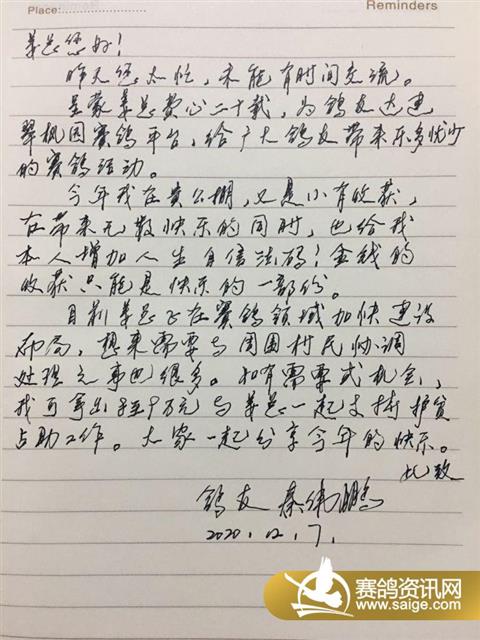 Place:
Reminders
姜总您好！
昨天您太忙，未能有时间交流。
呈蒙姜总费心二十载，为鸽友达建
翠枫园赛鸽平台，给广大鸽友带来乐多忧少
的赛鸽活动。
今年我在贵公棚，又是小有收获，
在带来无数快乐的同时，也给我
本人增加人生自信法码！金钱的
收获只能是快乐的一部份。
目前姜总飞在赛鸽领域加快建设
布局，想来需要与周围村民协调
处理之事也很多。如有需要或机会，
我可拿出 万元与姜总一起支持 贫
助工作。大家一起分享今年的快乐。
此致
鸽友 秦伟鹏
2020.12.7.
赛鸽资讯网
www.saige.com